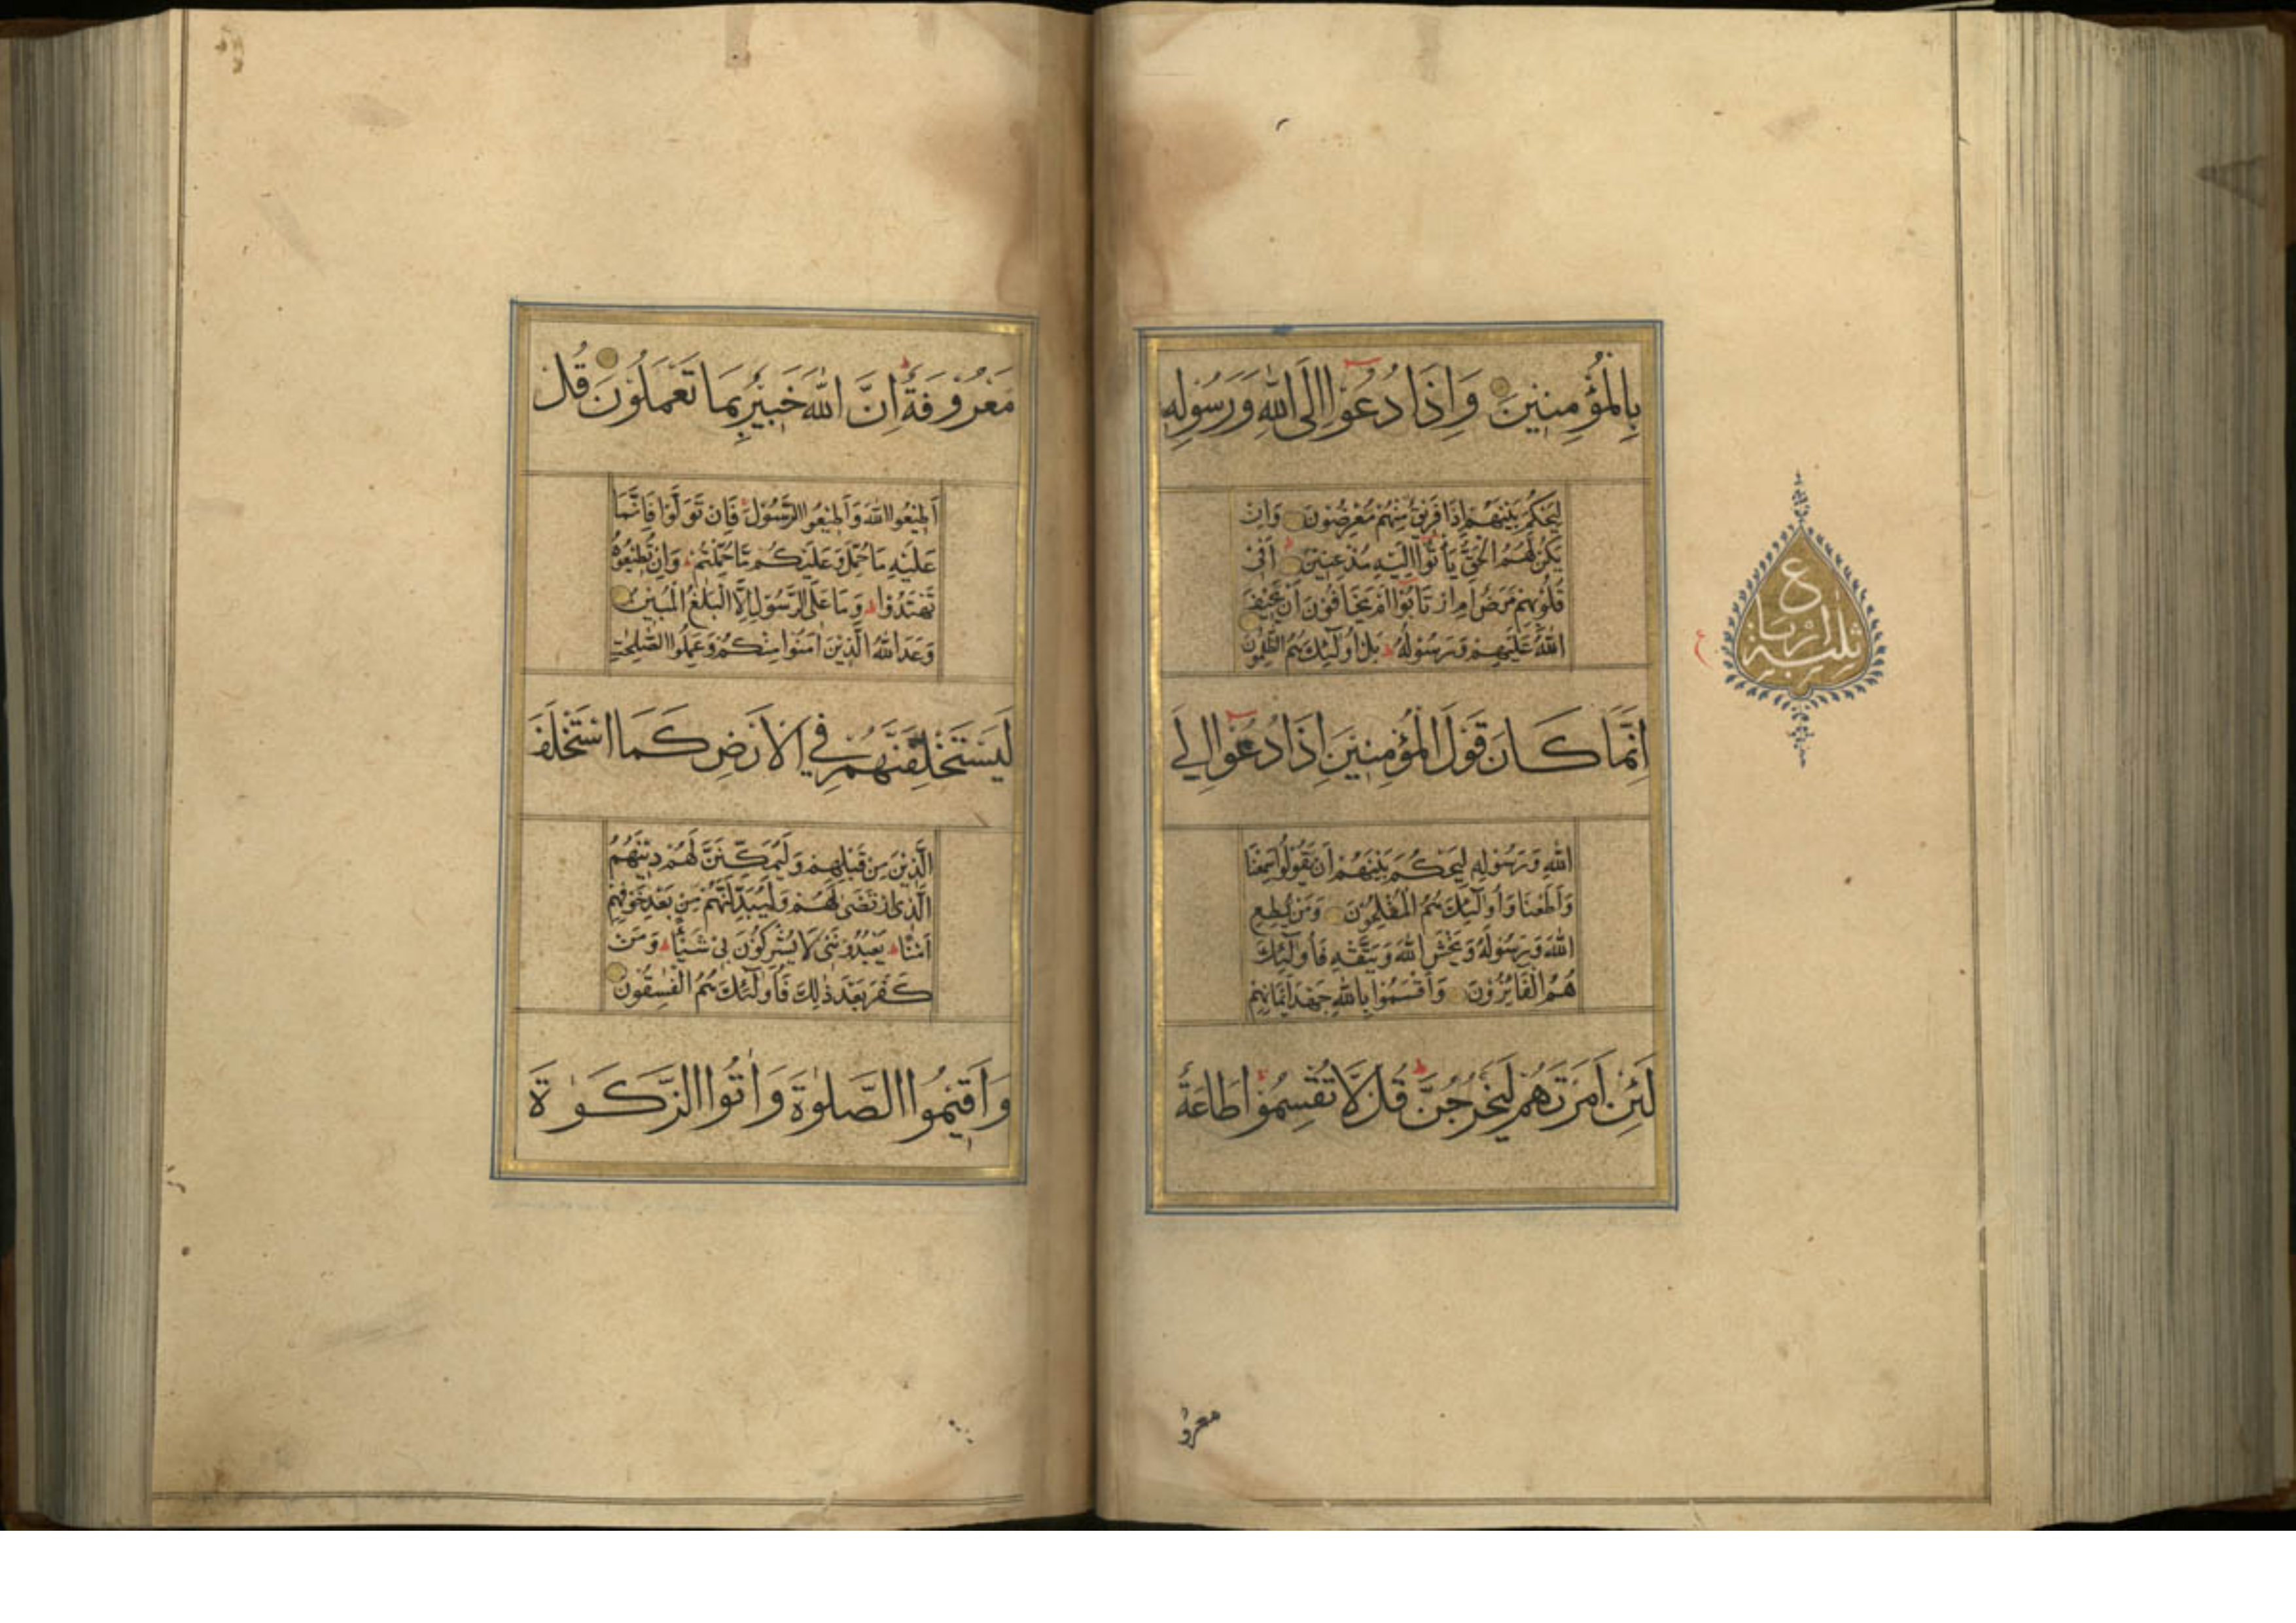 بِالْمُؤْمِنِينَ وَاِذَا دُعُوْا اِلَى اللّٰهِ وَرَسُوْلِهٖ
لِيَحْكُمَ بَيْنَهُمْ اِذَا فَرِيْقٌ مِنْهُمْ مُعْرِضُوْنَ وَاِنْ
يَكُنْ لَهُمُ الْحَقُّ يَأْتُوْا اِلَيْهِ مُذْعِنِيْنَ اَفِىْ
قُلُوْبِهِمْ مَرَضٌ اَمِ ارْتَابُوْا اَمْ يَخَافُوْنَ اَنْ يَحِيْفَ
اللّٰهُ عَلَيْهِمْ وَرَسُوْلُهُ بَلْ اُولٰٓئِكَ هُمُ الظّٰلِمُوْنَ
اِنَّمَا كَانَ قَوْلَ الْمُؤْمِنِيْنَ اِذَا دُعُوْا اِلَى
اللّٰهِ وَرَسُوْلِهٖ لِيَحْكُمَ بَيْنَهُمْ اَنْ يَقُوْلُوْا سَمِعْنَا
وَاَطَعْنَا وَاُولٰٓئِكَ هُمُ الْمُفْلِحُوْنَ وَمَنْ يُطِعِ
اللّٰهَ وَرَسُوْلَهُ وَيَخْشَ اللّٰهَ وَيَتَّقْهِ فَاُولٰٓئِكَ
هُمُ الْفَائِزُوْنَ وَاَقْسَمُوْا بِاللّٰهِ جَهْدَ اَيْمَانِهِمْ
لَئِنْ اَمَرْتَهُمْ لَيَخْرُجُنَّ قُلْ لَّا تُقْسِمُوْا طَاعَةٌ
ثلثة ارباع
ع
معرو
مَعْرُوْفَةٌ اِنَّ اللّٰهَ خَبِيْرٌ بِمَا تَعْمَلُوْنَ قُلْ
اَطِيْعُوا اللّٰهَ وَاَطِيْعُوا الرَّسُوْلَ فَاِنْ تَوَلَّوْا فَاِنَّمَا
عَلَيْهِ مَا حُمِّلَ وَعَلَيْكُمْ مَّا حُمِّلْتُمْ وَاِنْ تُطِيْعُوْهُ
تَهْتَدُوْا وَمَا عَلَى الرَّسُوْلِ اِلَّا الْبَلٰغُ الْمُبِيْنُ
وَعَدَ اللّٰهُ الَّذِيْنَ اٰمَنُوْا مِنْكُمْ وَعَمِلُوا الصّٰلِحٰتِ
لَيَسْتَخْلِفَنَّهُمْ فِي الْاَرْضِ كَمَا اسْتَخْلَفَ
الَّذِيْنَ مِنْ قَبْلِهِمْ وَلَيُمَكِّنَنَّ لَهُمْ دِيْنَهُمُ
الَّذِى ارْتَضٰى لَهُمْ وَلَيُبَدِّلَنَّهُمْ مِنْ بَعْدِ خَوْفِهِمْ
اَمْنًا يَعْبُدُوْنَنِىْ لَا يُشْرِكُوْنَ بِىْ شَيْئًا وَمَنْ
كَفَرَ بَعْدَ ذٰلِكَ فَاُولٰٓئِكَ هُمُ الْفٰسِقُوْنَ
وَاَقِيْمُوا الصَّلٰوةَ وَاٰتُوا الزَّكٰوةَ